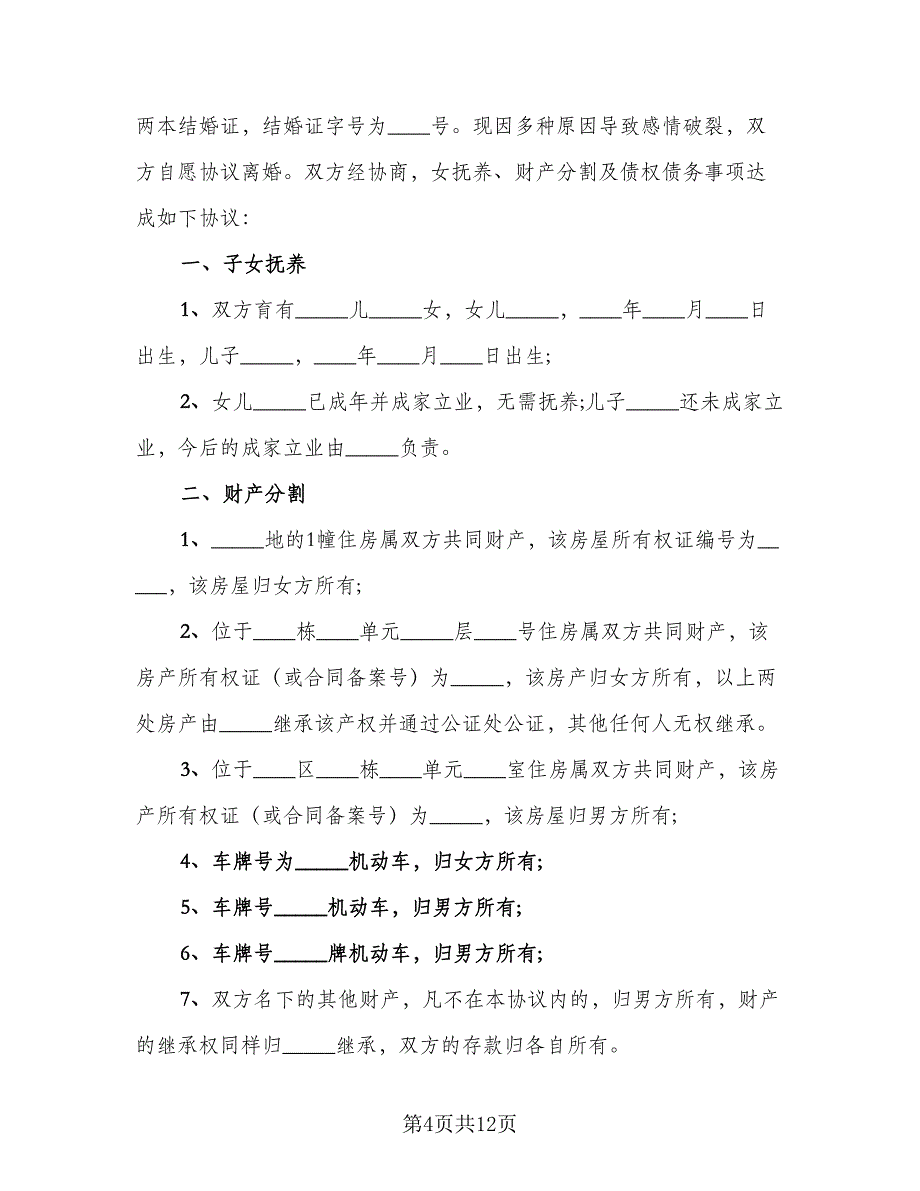 两本结婚证，结婚证字号为____号。现因多种原因导致感情破裂，双
方自愿协议离婚。双方经协商，女抚养、财产分割及债权债务事项达
成如下协议：
一、子女抚养
1、双方育有_____儿_____女，女儿_____，____年____月____日
出生，儿子_____，____年____月____日出生;
2、女儿_____已成年并成家立业，无需抚养;儿子_____还未成家立
业，今后的成家立业由_____负责。
二、财产分割
1、_____地的1幢住房属双方共同财产，该房屋所有权证编号为__
___，该房屋归女方所有;
2、位于____栋____单元_____层____号住房属双方共同财产，该
房产所有权证（或合同备案号）为_____，该房产归女方所有，以上两
处房产由_____继承该产权并通过公证处公证，其他任何人无权继承。
3、位于____区____栋____单元____室住房属双方共同财产，该房
产所有权证（或合同备案号）为_____，该房屋归男方所有;
4、车牌号为_____机动车，归女方所有;
5、车牌号_____机动车，归男方所有;
6、车牌号_____牌机动车，归男方所有;
7、双方名下的其他财产，凡不在本协议内的，归男方所有，财产
的继承权同样归_____继承，双方的存款归各自所有。
第4页共12页